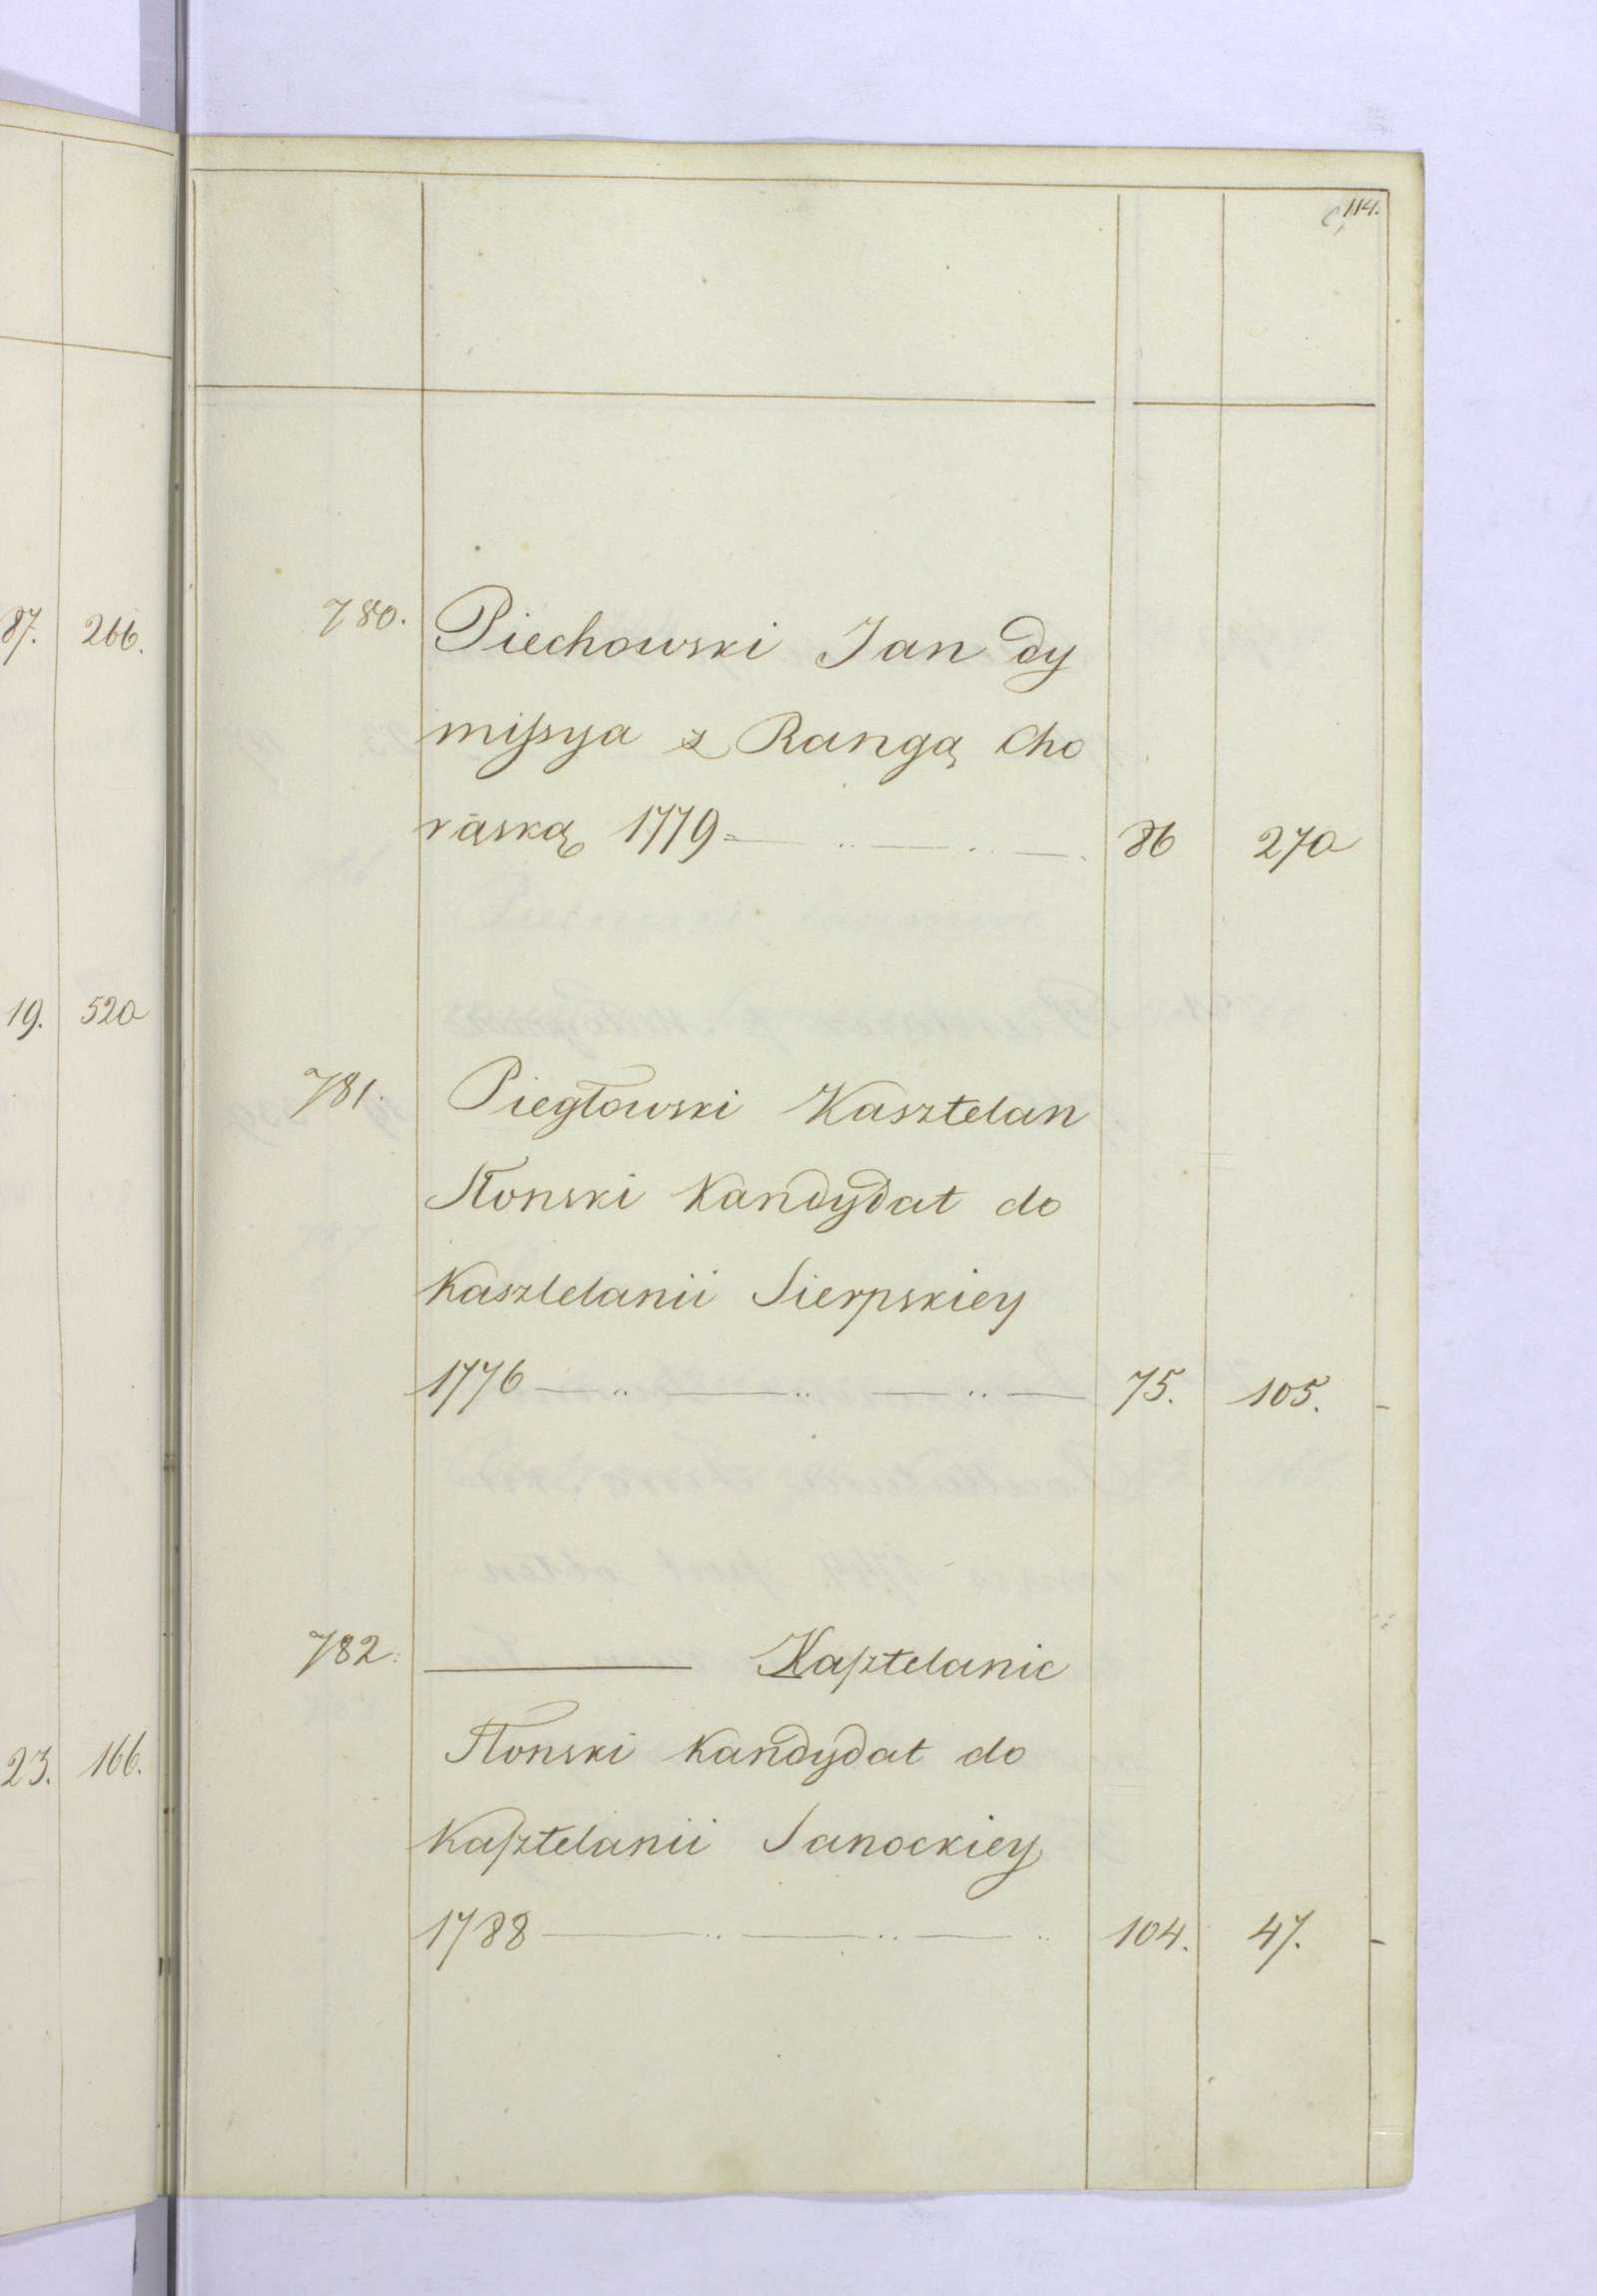 114.
87. 266.
19. 520
23. 166.
780. Piechowski Jan dy
missya z Rangą Cho
rąską 1779 86 270
781. Piegłowski Kasztelan
Słonski Kandydat do
Kasztelanii Sierpskiey
1776 75. 105.
782. Kasztelanic
Słonski Kandydat do
Kasztelanii Sanockiey
1788 104. 47.